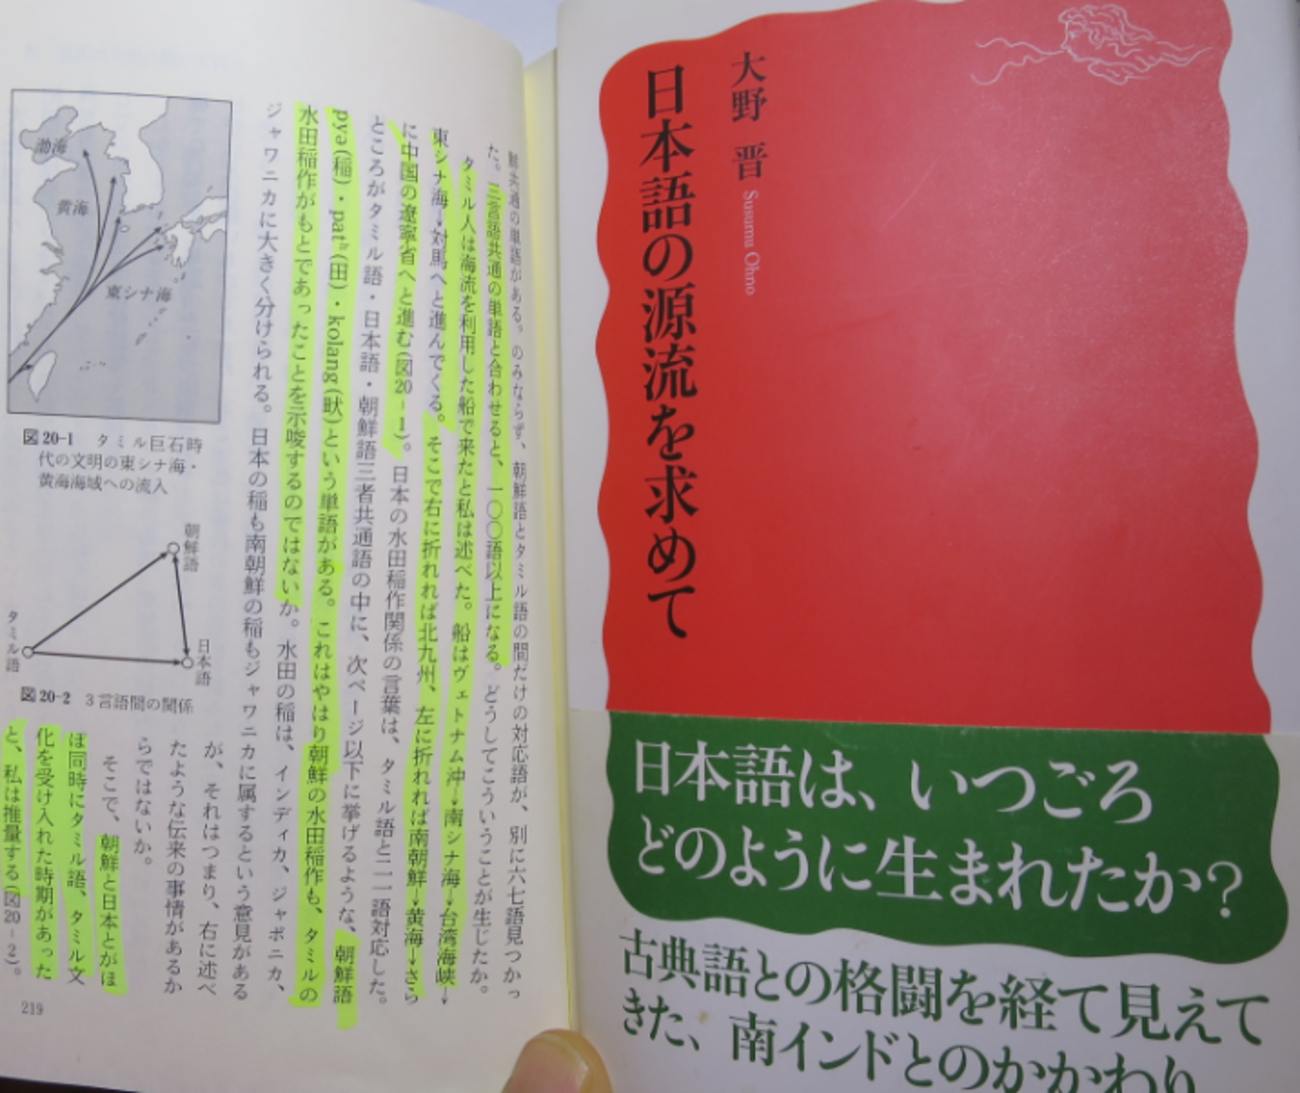 鮮共通の単語がある。のみならず、朝鮮語とタミル語の間だけの対応語が、別に六七語見つかっ
た。三言語共通の単語と合わせると、一〇〇語以上になる。どうしてこういうことが生じたか。
タミル人は海流を利用した船で来たと私は述べた。船はヴェトナム沖→南シナ海→台湾海峡→
東シナ海→対馬へと進んでくる。そこで右に折れれば北九州、左に折れれば南朝鮮→黄海→さら
に中国の遼寧省へと進む(図20-1)。日本の水田稲作関係の言葉は、タミル語と二一語対応した。
ところがタミル語・日本語・朝鮮語三者共通語の中に、次ページ以下に挙げるような、朝鮮語
pya(稲)・patʰ(田)・kolang(畎)という単語がある。これはやはり朝鮮の水田稲作も、タミルの
水田稲作がもとであったことを示唆するのではないか。水田の稲は、インディカ、ジャポニカ、
ジャワニカに大きく分けられる。日本の稲も南朝鮮の稲もジャワニカに属するという意見がある
が、それはつまり、右に述べ
たような伝来の事情があるか
らではないか。
そこで、朝鮮と日本とがほ
ぼ同時にタミル語、タミル文
化を受け入れた時期があった
と、私は推量する(図20-2)。
渤海
黄海
東シナ海
図20-1 タミル巨石時
代の文明の東シナ海・
黄海海域への流入
朝鮮語
タミル語
日本語
図20-2 3言語間の関係
219
大野 晋 Susumu Ohno
日本語の源流を求めて
日本語は、いつごろ
どのように生まれたか?
古典語との格闘を経て見えて
きた、南インドとのかかわり